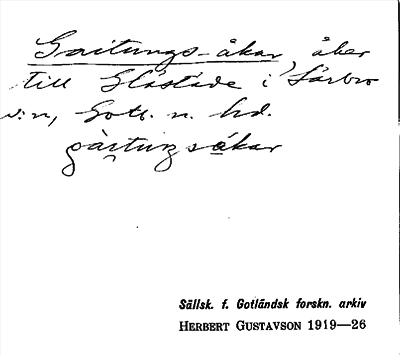 Gaitungs-åkar, åker
till Glästäde i Lärbro
s:n, Gotl. n. hd.
gàituŋsákar
Sällsk. f. Gotländsk forskn. arkiv
HERBERT GUSTAVSON 1919—26